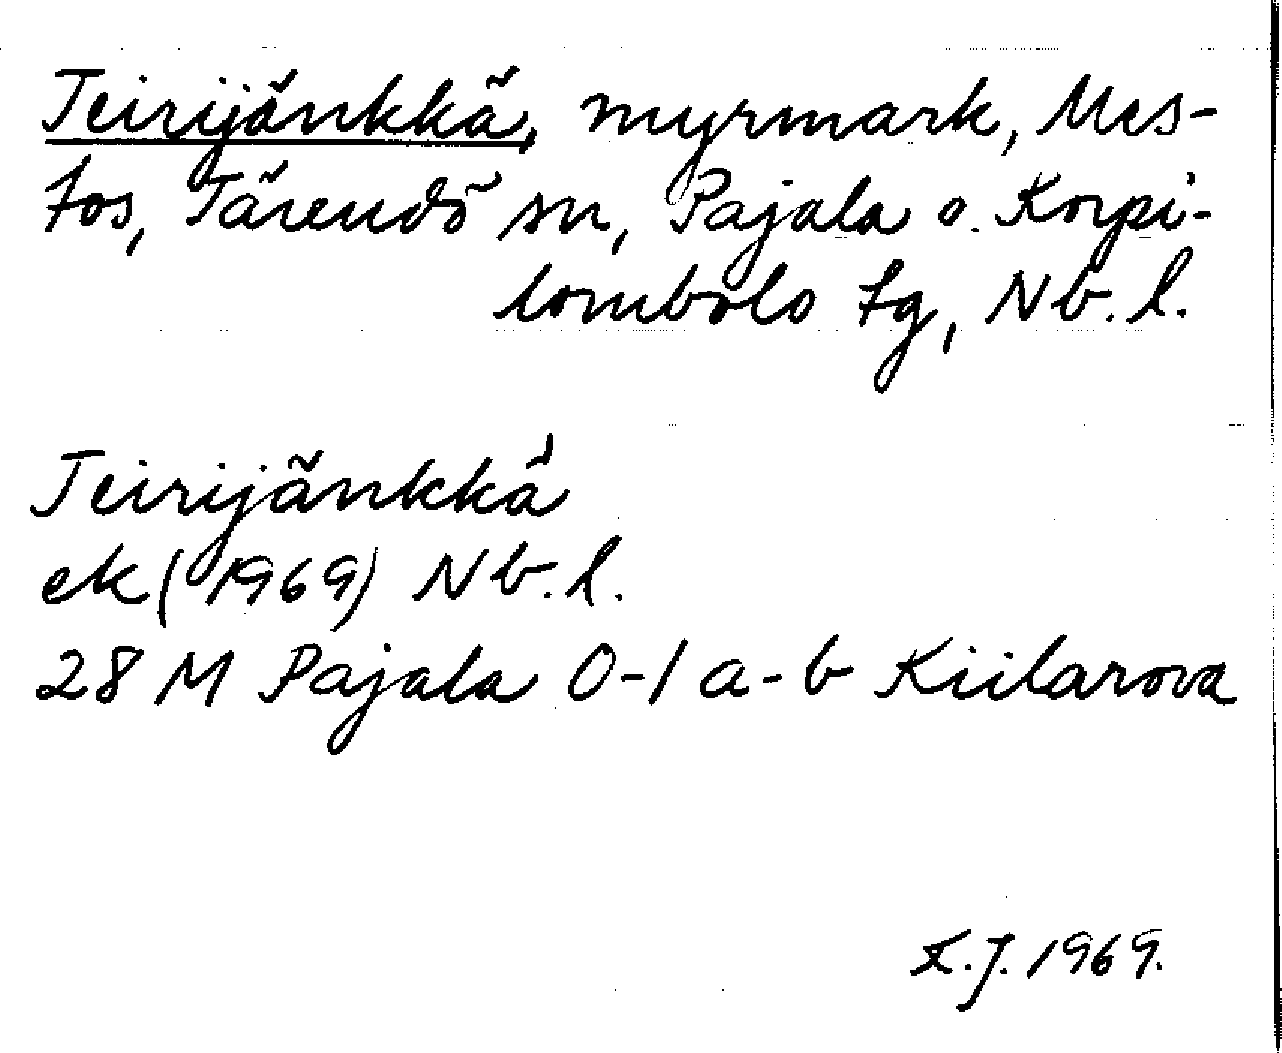 Teirijänkkä, myrmark, Mes-
tos, Tärendö sn, Pajala o. Korpi-
lombolo tg, Nb. l.
Teirijänkkä
ek (1969) Nb. l.
28 M Pajala 0-1 a-b Kiilarova
K.J. 1969.